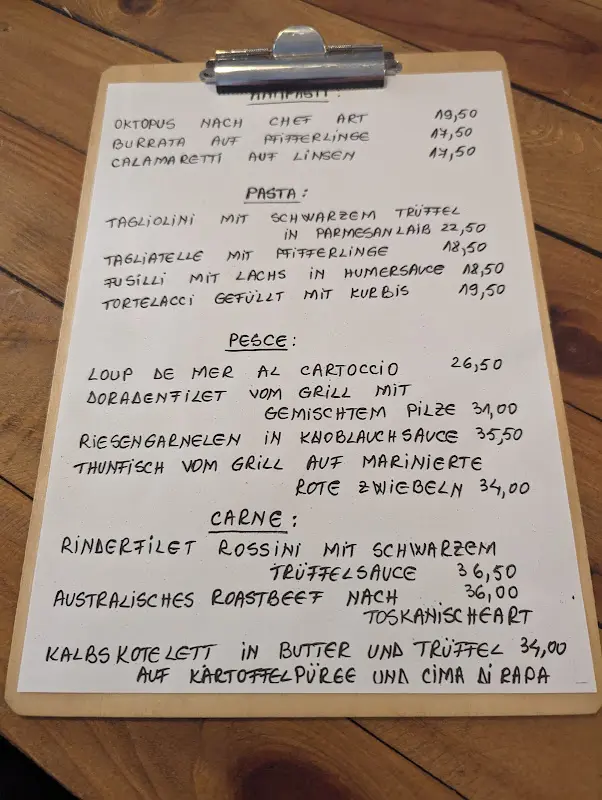 ANTIPASTI:
OKTOPUS NACH CHEF ART 19,50
BURRATA AUF PFIFFERLINGE 17,50
CALAMARETTI AUF LINSEN 17,50
PASTA:
TAGLIOLINI MIT SCHWARZEM TRÜFFEL
IN PARMESANLAIB 22,50
TAGLIATELLE MIT PFIFFERLINGE 18,50
FUSILLI MIT LACHS IN HUMERSAUCE 18,50
TORTELACCI GEFÜLLT MIT KURBIS 19,50
PESCE:
LOUP DE MER AL CARTOCCIO 26,50
DORADENFILET VOM GRILL MIT
GEMISCHTEM PILZE 31,00
RIESENGARNELEN IN KNOBLAUCHSAUCE 35,50
THUNFISCH VOM GRILL AUF MARINIERTE
ROTE ZWIEBELN 34,00
CARNE:
RINDERFILET ROSSINI MIT SCHWARZEM
TRÜFFELSAUCE 36,50
AUSTRALISCHES ROASTBEEF NACH 36,00
TOSKANISCHEART
KALBSKOTELETT IN BUTTER UND TRÜFFEL 34,00
AUF KARTOFFELPÜREE UND CIMA DI RAPA